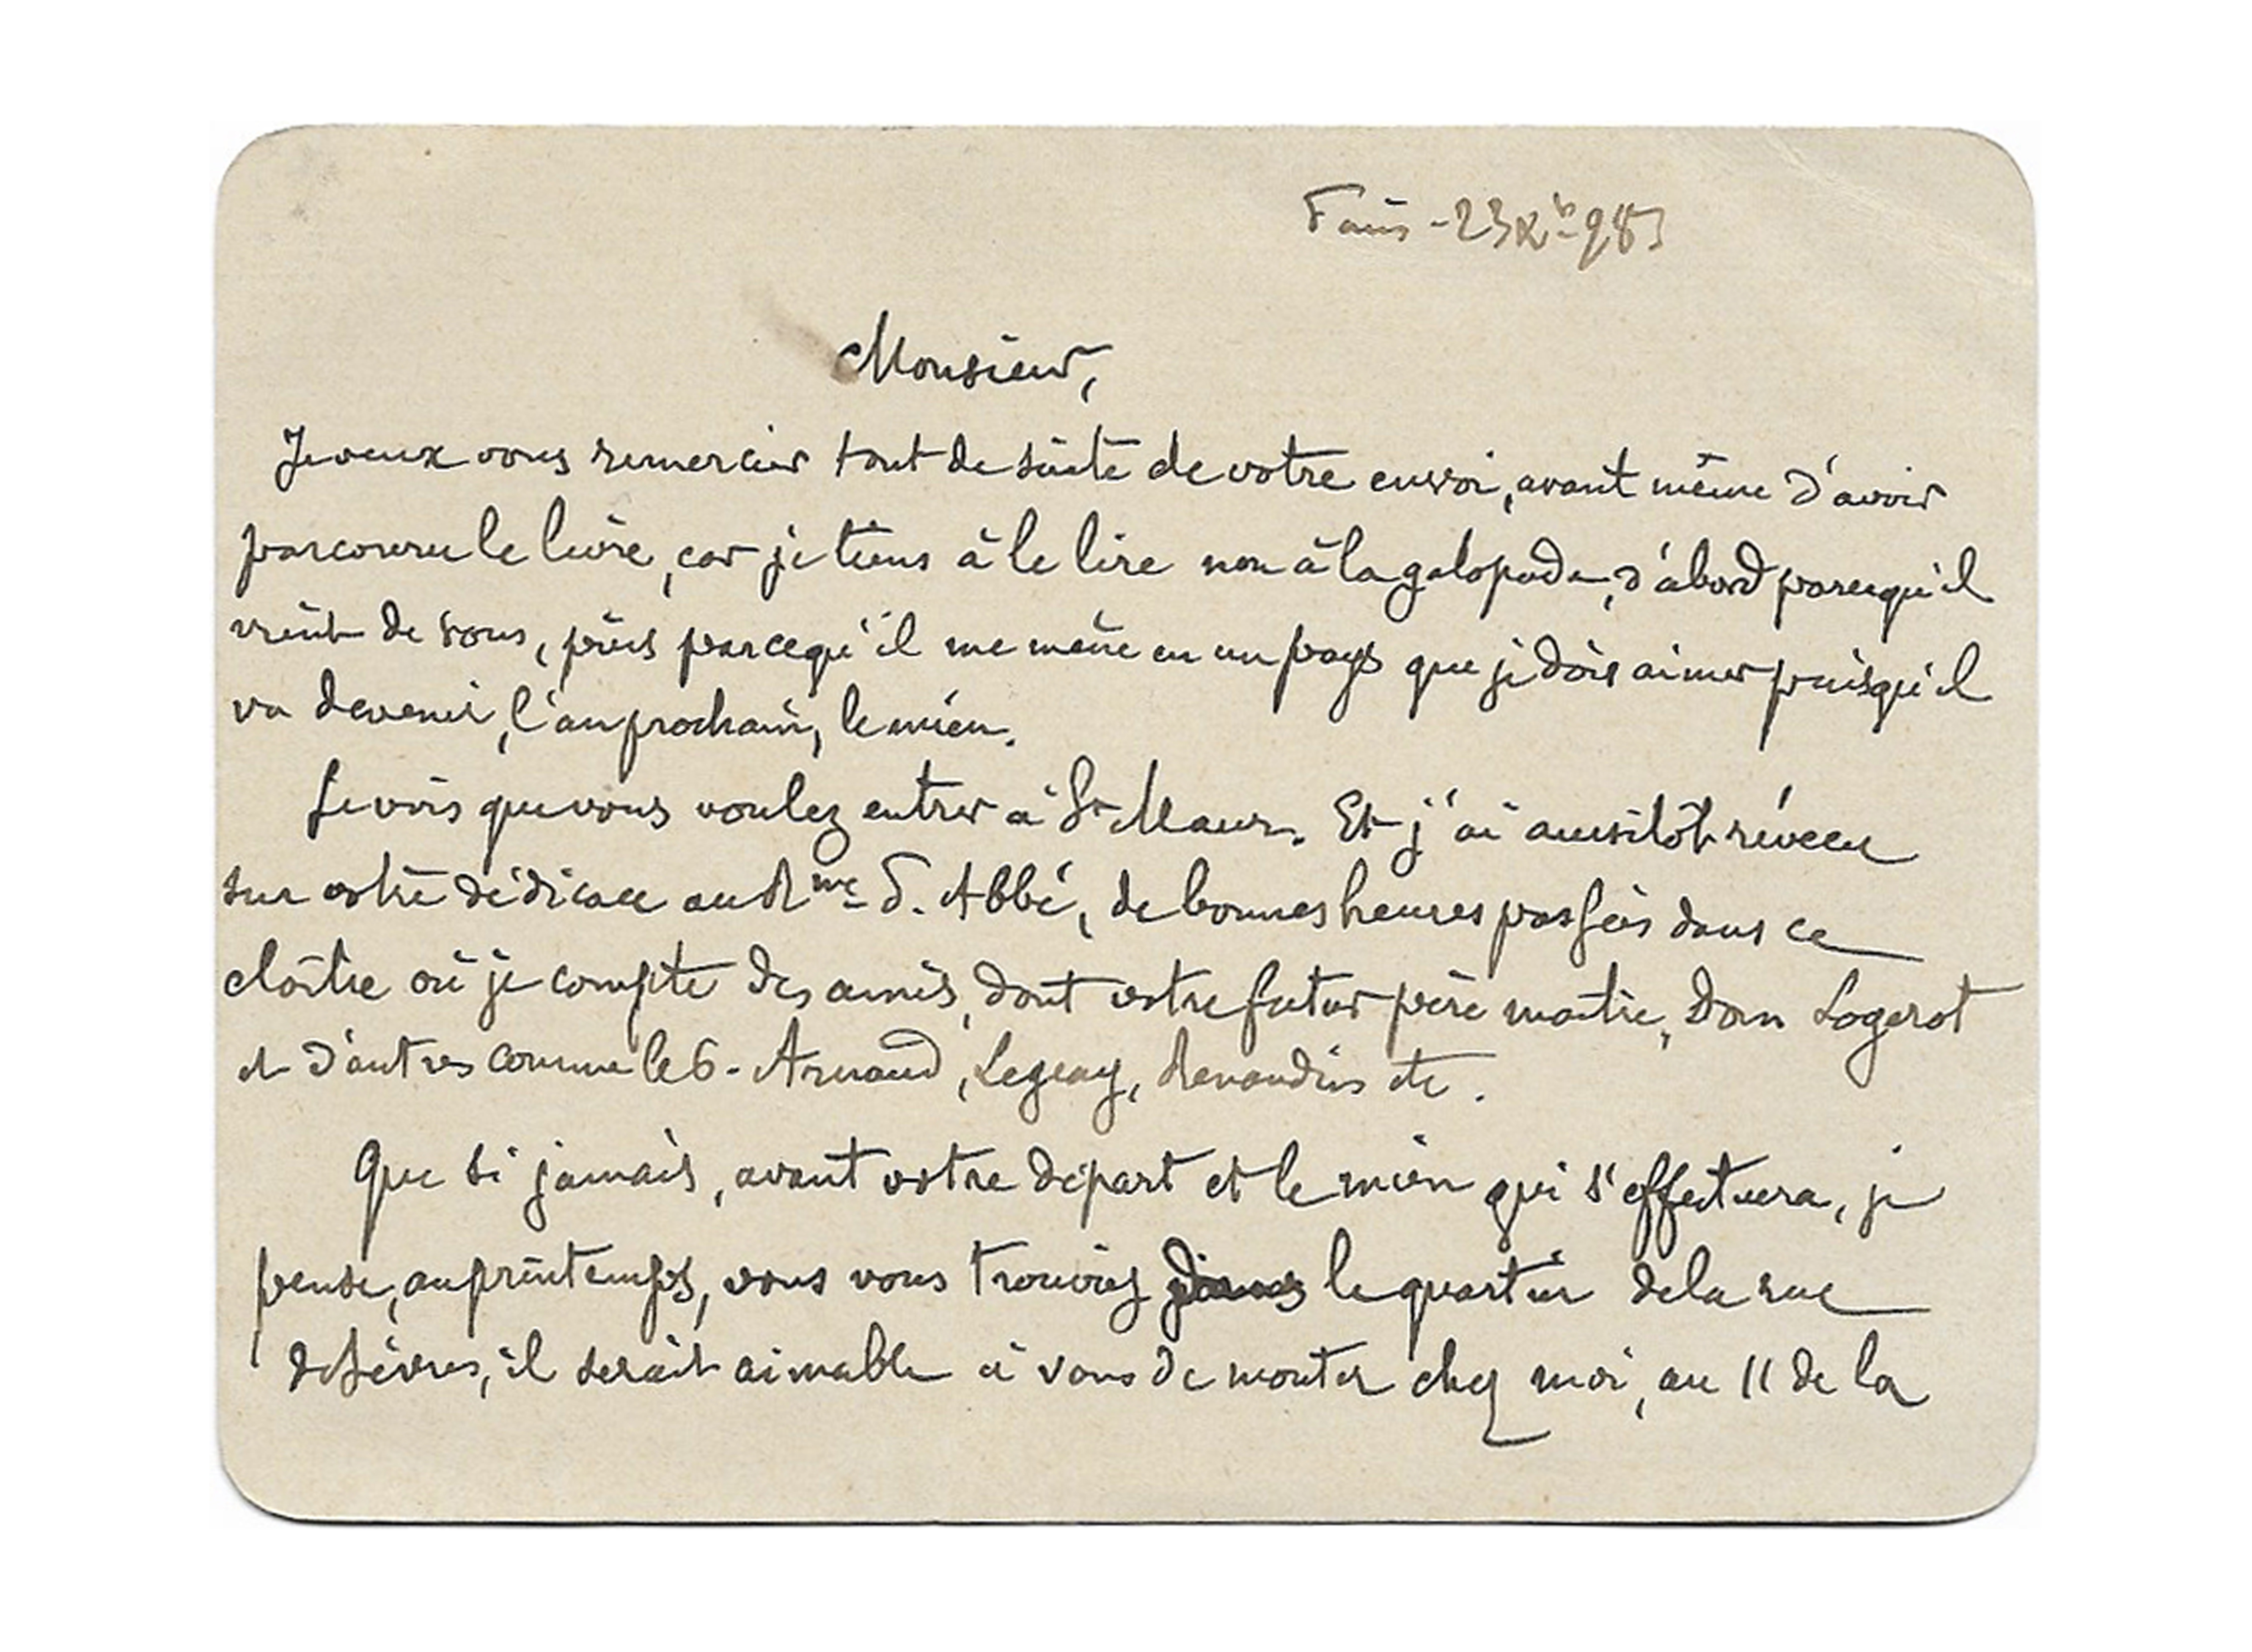 Paris - 23 Xb 98
Monsieur,
Je veux vous remercier tout de suite de votre envoi, avant même d'avoir
parcouru le livre, car je tiens à le lire non à la galopade, d'abord parcequ'il
vient de vous, puis parcequ'il me mène en un pays que je dois aimer puisqu'il
va devenir, l'an prochain, le mien.
Je vois que vous voulez entrer à St Maur. Et j'ai aussitôt révécu
sur votre dédicace au Rme P. Abbé, de bonnes heures passées dans ce
cloître où je compte des amis, dont votre futur père maître, Dom Logerot
et d'autres comme le P. Arnaud, Legeay, Renaudin etc.
Que si jamais, avant votre départ et le mien qui s'effectuera, je
pense, au printemps, vous vous trouviez dans le quartier de la rue
de Sèvres, il serait aimable à vous de monter chez moi, au 11 de la